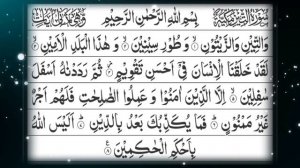 سُورَةُ التِّينِ مَكِّيَّةٌ بِسْمِ اللّٰهِ الرَّحْمٰنِ الرَّحِيْمِ
وَالتِّيْنِ وَالزَّيْتُوْنِ ۙ وَطُوْرِ سِيْنِيْنَ ۙ وَهٰذَا الْبَلَدِ الْاَمِيْنِ ۙ
لَقَدْ خَلَقْنَا الْاِنْسَانَ فِيْٓ اَحْسَنِ تَقْوِيْمٍ ۖ ثُمَّ رَدَدْنٰهُ اَسْفَلَ
سٰفِلِيْنَ ۙ اِلَّا الَّذِيْنَ اٰمَنُوْا وَعَمِلُوا الصّٰلِحٰتِ فَلَهُمْ اَجْرٌ
غَيْرُ مَمْنُوْنٍ ۗ فَمَا يُكَذِّبُكَ بَعْدُ بِالدِّيْنِ ۗ اَلَيْسَ اللّٰهُ
بِاَحْكَمِ الْحٰكِمِيْنَ